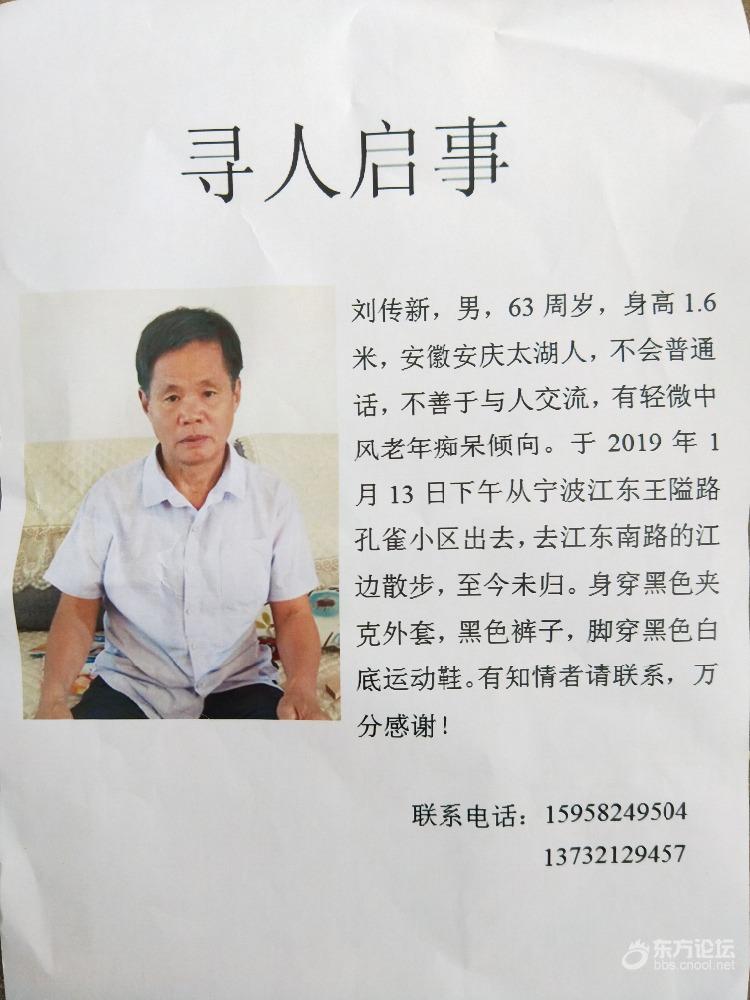 寻人启事
刘传新，男，63 周岁，身高 1.6
米，安徽安庆太湖人，不会普通
话，不善于与人交流，有轻微中
风老年痴呆倾向。于 2019 年 1
月 13 日下午从宁波江东王隘路
孔雀小区出去，去江东南路的江
边散步，至今未归。身穿黑色夹
克外套，黑色裤子，脚穿黑色白
底运动鞋。有知情者请联系，万
分感谢！
联系电话：15958249504
13732129457
东方论坛
bbs.cnool.net